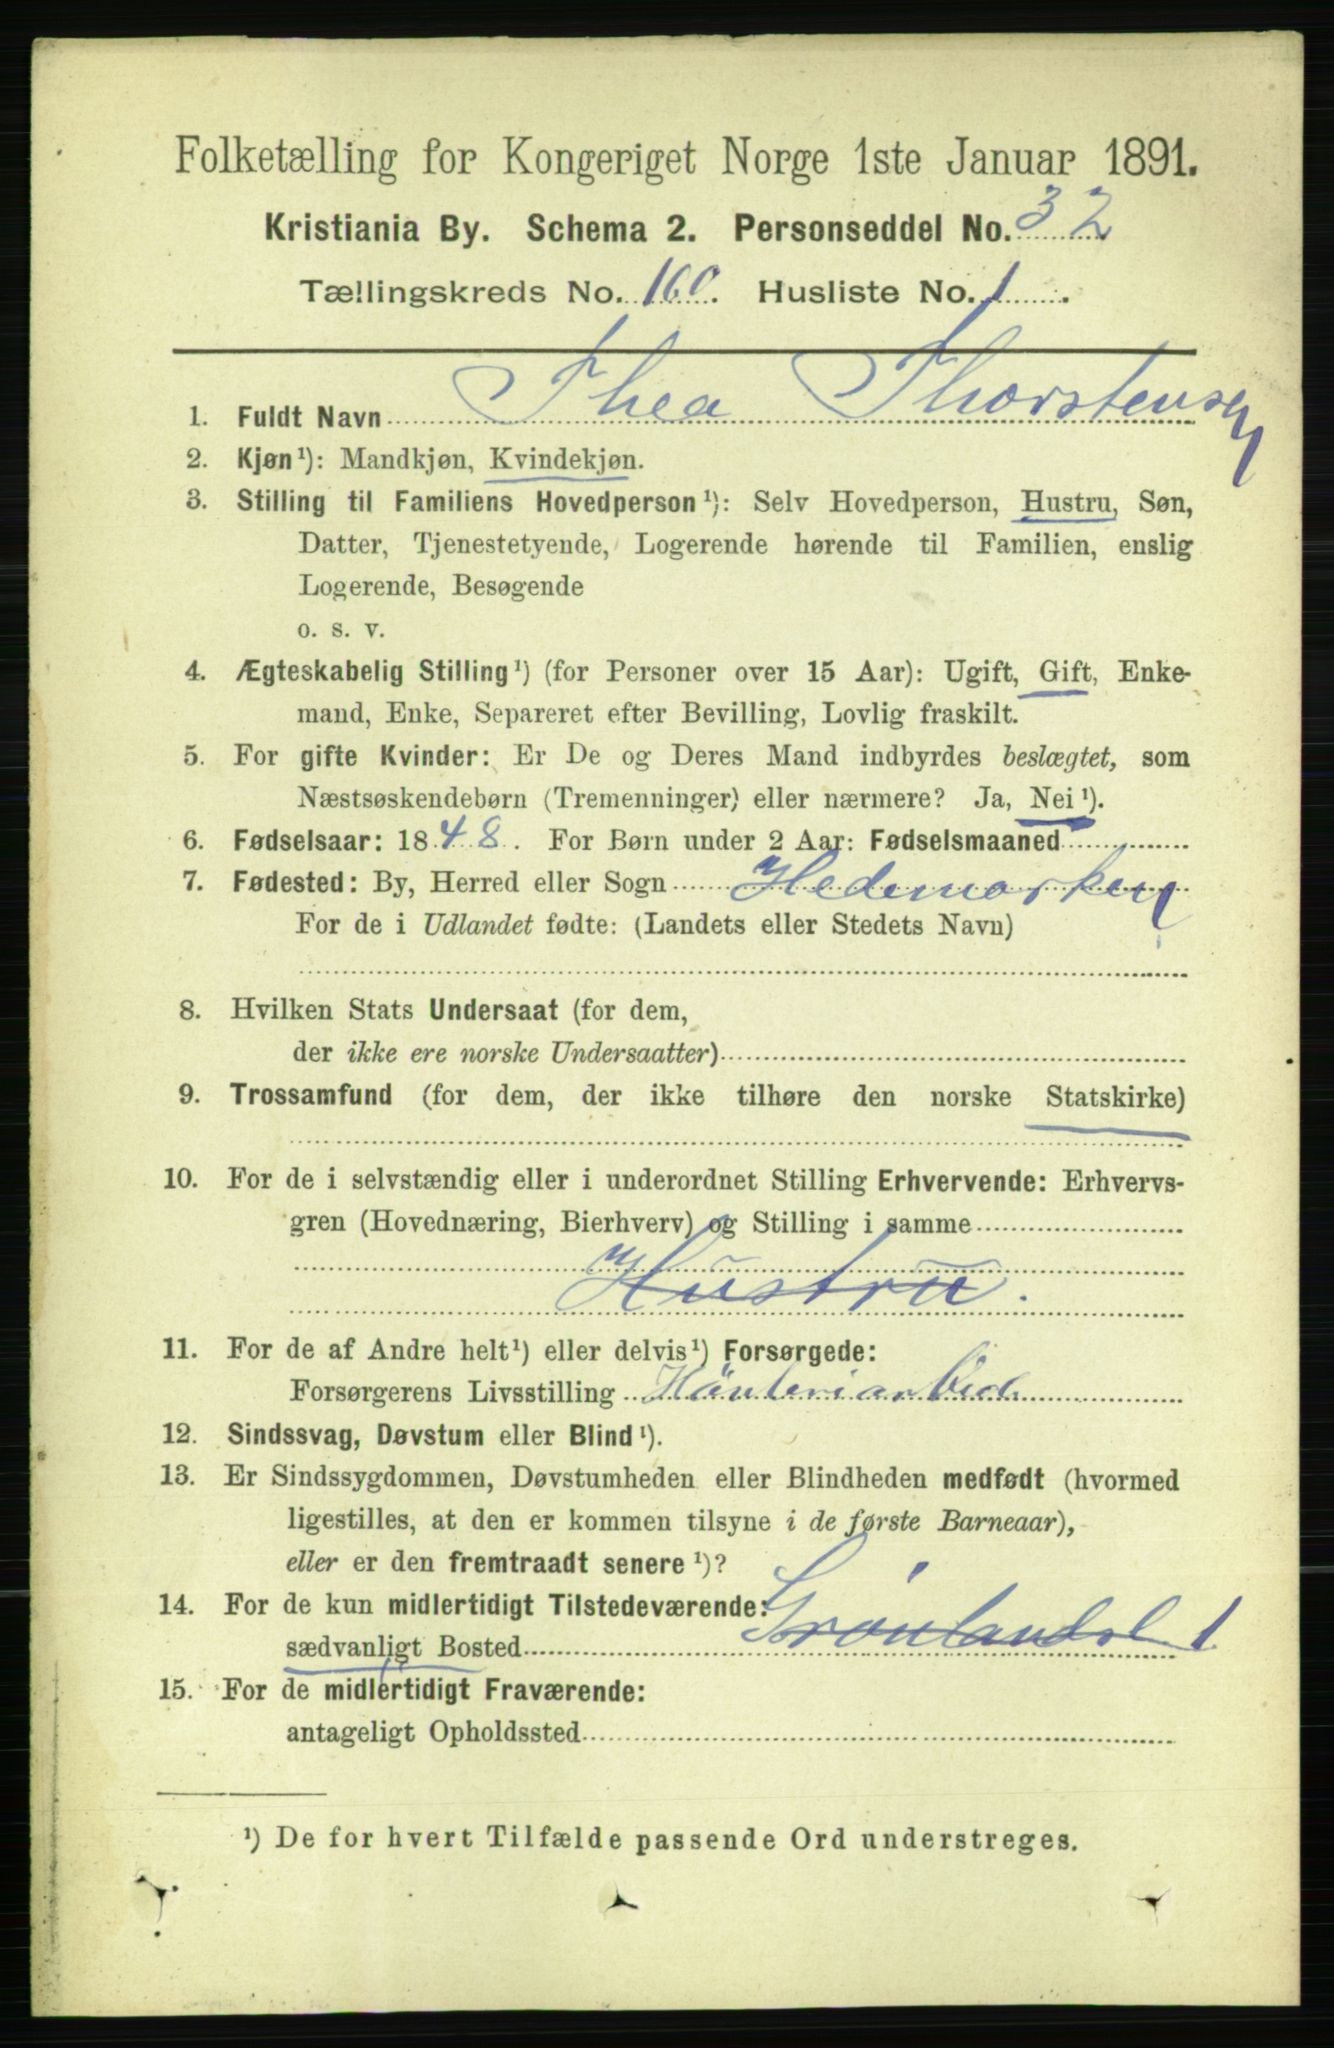 Folketælling for Kongeriget Norge 1ste Januar 1891.
Kristiania By. Schema 2. Personseddel No. 32
Tællingskreds No. 160. Husliste No. 1.
1. Fuldt Navn Thea Thorstensen
2. Kjøn¹): Mandkjøn, Kvindekjøn.
3. Stilling til Familiens Hovedperson¹): Selv Hovedperson, Hustru, Søn,
Datter, Tjenestetyende, Logerende hørende til Familien, enslig
Logerende, Besøgende
o. s. v.
4. Ægteskabelig Stilling¹) (for Personer over 15 Aar): Ugift, Gift, Enke-
mand, Enke, Separeret efter Bevilling, Lovlig fraskilt.
5. For gifte Kvinder: Er De og Deres Mand indbyrdes beslægtet, som
Næstsøskendebørn (Tremenninger) eller nærmere? Ja, Nei¹).
6. Fødselsaar: 1848. For Børn under 2 Aar: Fødselsmaaned
7. Fødested: By, Herred eller Sogn Hedemarken
For de i Udlandet fødte: (Landets eller Stedets Navn)
8. Hvilken Stats Undersaat (for dem,
der ikke ere norske Undersaatter)
9. Trossamfund (for dem, der ikke tilhøre den norske Statskirke)
10. For de i selvstændig eller i underordnet Stilling Erhvervende: Erhvervs-
gren (Hovednæring, Bierhverv) og Stilling i samme
Hustru.
11. For de af Andre helt¹) eller delvis¹) Forsørgede:
Forsørgerens Livsstilling
12. Sindssvag, Døvstum eller Blind¹).
13. Er Sindssygdommen, Døvstumheden eller Blindheden medfødt (hvormed
ligestilles, at den er kommen tilsyne i de første Barneaar),
eller er den fremtraadt senere¹)?
14. For de kun midlertidigt Tilstedeværende:
sædvanligt Bosted Grønlandsl 1
15. For de midlertidigt Fraværende:
antageligt Opholdssted
¹) De for hvert Tilfælde passende Ord understreges.